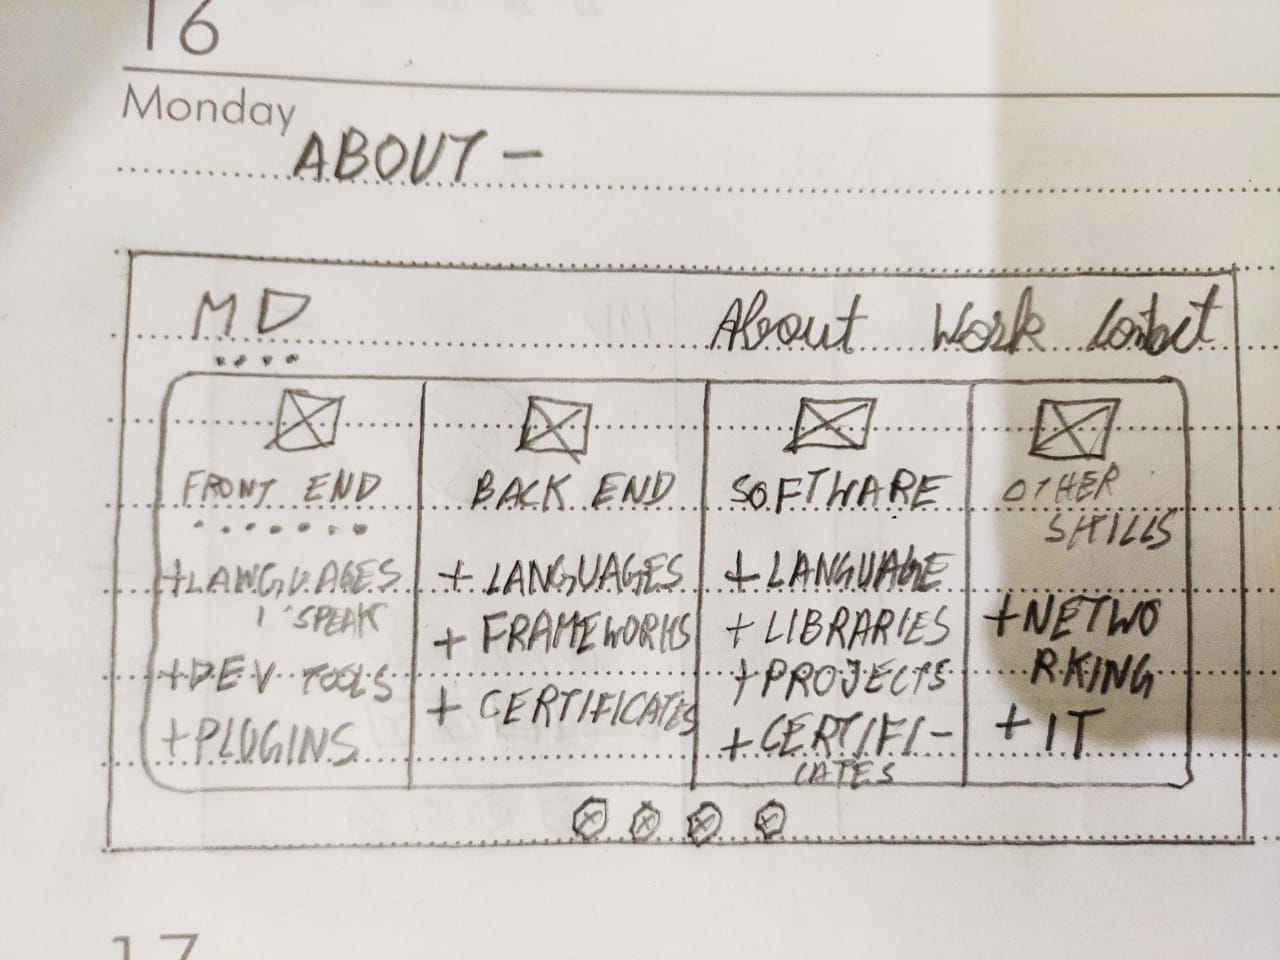 16
Monday
ABOUT -
MD
About Work Contact
FRONT END
+LANGUAGES
I SPEAK
+DEV TOOLS
+PLUGINS
BACK END
+ LANGUAGES
+ FRAMEWORKS
+ CERTIFICATES
SOFTWARE
+ LANGUAGE
+ LIBRARIES
+ PROJECTS
+ CERTIFI-
CATES
OTHER
SKILLS
+NETWO
RKING
+ IT
17